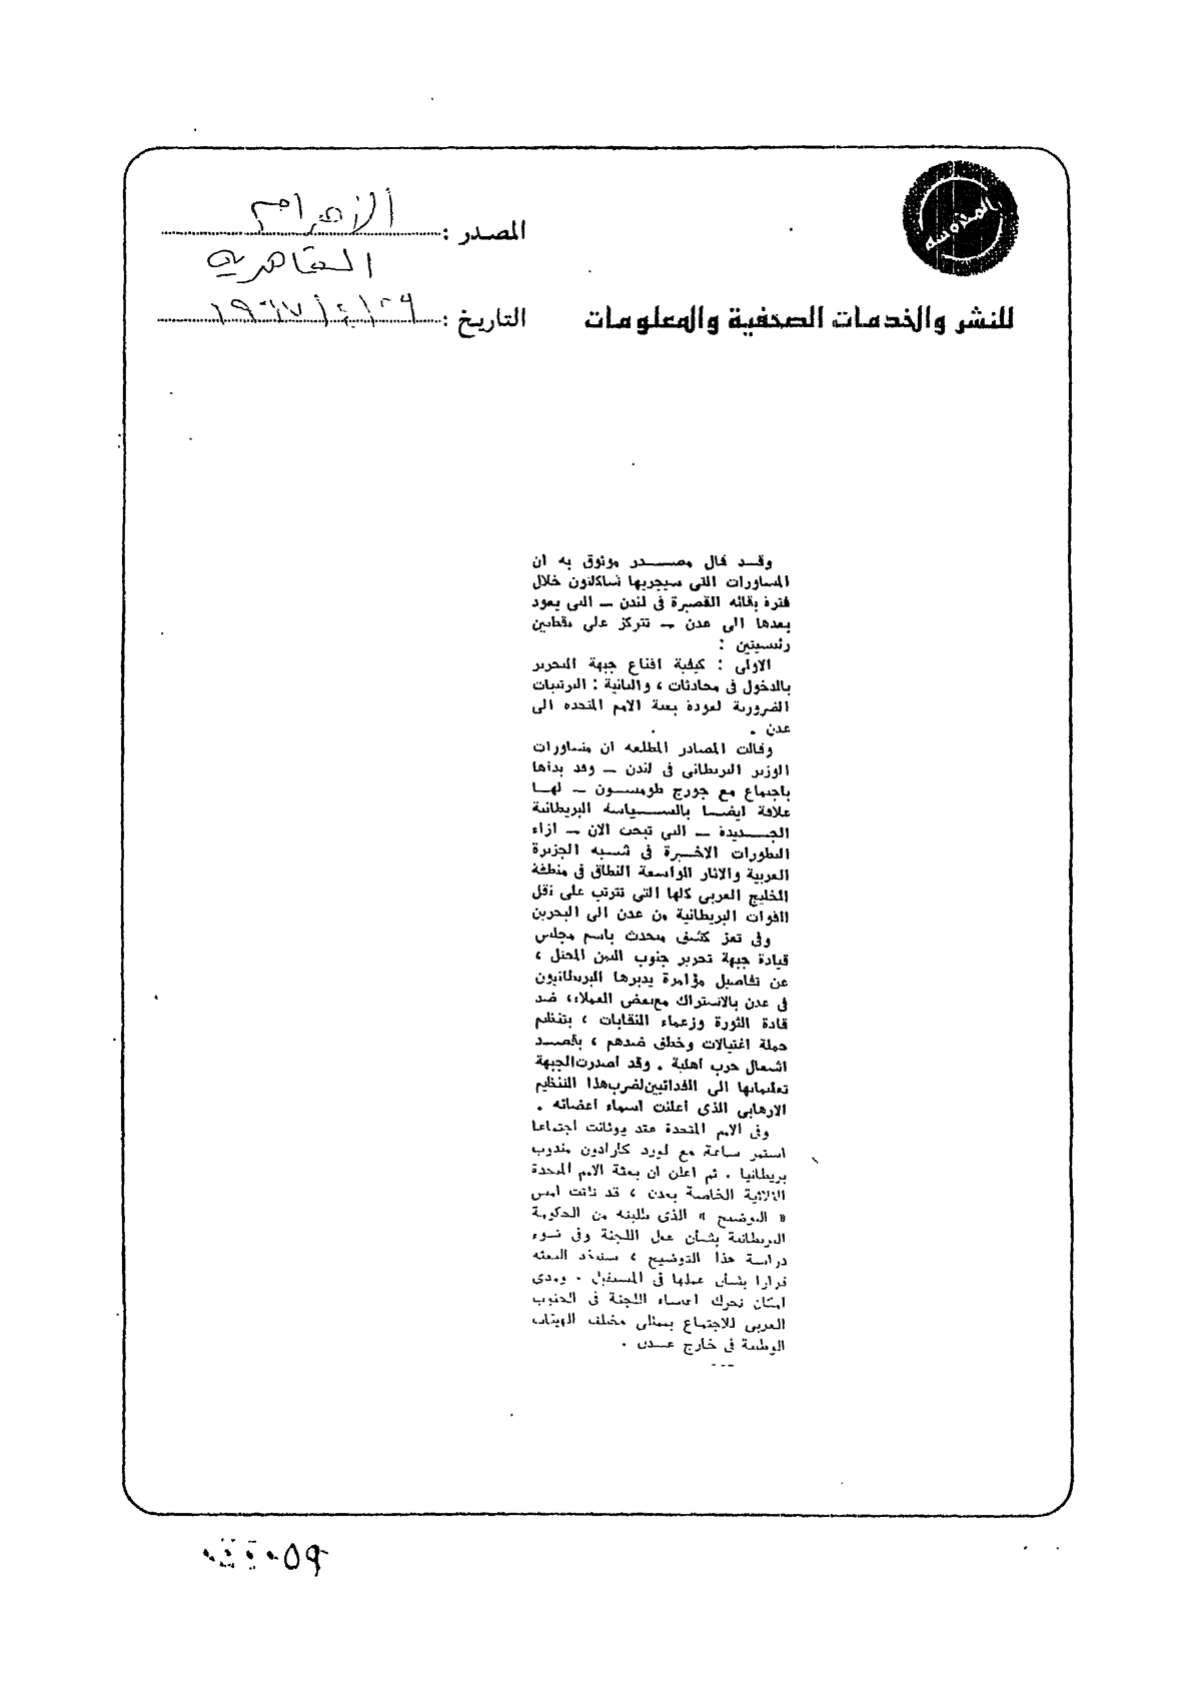 المصدر : الأهرام
القاهرية
التاريخ : ٢٩ / ٤ / ١٩٦٧
للنشر والخدمات الصحفية والمعلومات
وقــد قال مصــــدر موثوق به ان
المشاورات التى سيجريها شاكلتون خلال
فترة بقائه القصيرة فى لندن ــ التى يعود
بعدها الى عدن ــ تتركز على نقطتين
رئيسيتين :
الاولى : كيفية اقناع جبهة التحرير
بالدخول فى محادثات ، والثانية : الترتيبات
الضرورية لعودة بعثة الامم المتحدة الى
عدن .
وقالت المصادر المطلعه ان مشاورات
الوزير البريطانى فى لندن ــ وقد بدأها
باجتماع مع جورج طومســـون ــ لهــا
علاقة ايضــا بالســـياسة البريطانية
الجــديدة ــ التى تبحث الآن ــ ازاء
التطورات الاخــيرة فى شــبه الجزيرة
العربية والاثار الواسعة النطاق فى منطقة
الخليج العربى كلها التى تترتب على نقل
القوات البريطانية من عدن الى البحرين
وفى تعز كشف متحدث باسم مجلس
قيادة جبهة تحرير جنوب اليمن المحتل ،
عن تفاصيل مؤامرة يدبرها البريطانيون
فى عدن بالاشتراك مع بعض العملاء، ضد
قادة الثورة وزعماء النقابات ، بتنظيم
حملة اغتيالات وخطف ضدهم ، بقصــد
اشعال حرب اهلية . وقد اصدرت الجبهة
تعليماتها الى الفدائيين لضرب هذا التنظيم
الارهابى الذى أعلنت اسماء أعضائه .
وفى الامم المتحدة عقد يوثانت اجتماعا
استمر ساعة مع لورد كارادون مندوب
بريطانيا . ثم اعلن ان بعثة الامم المتحدة
الثلاثية الخاصة بعدن ، قد تلقت امس
« التوضيح » الذى طلبته من الحكومة
البريطانية بشأن عمل اللجنة وفى ضوء
دراسة هذا التوضيح ، ستتخذ البعثه
قرارا بشأن عملها فى المستقبل . ومدى
امكان تحرك اعضاء اللجنة فى الجنوب
العربى للاجتماع بممثلى مختلف الهيئات
الوطنية فى خارج عــدن .